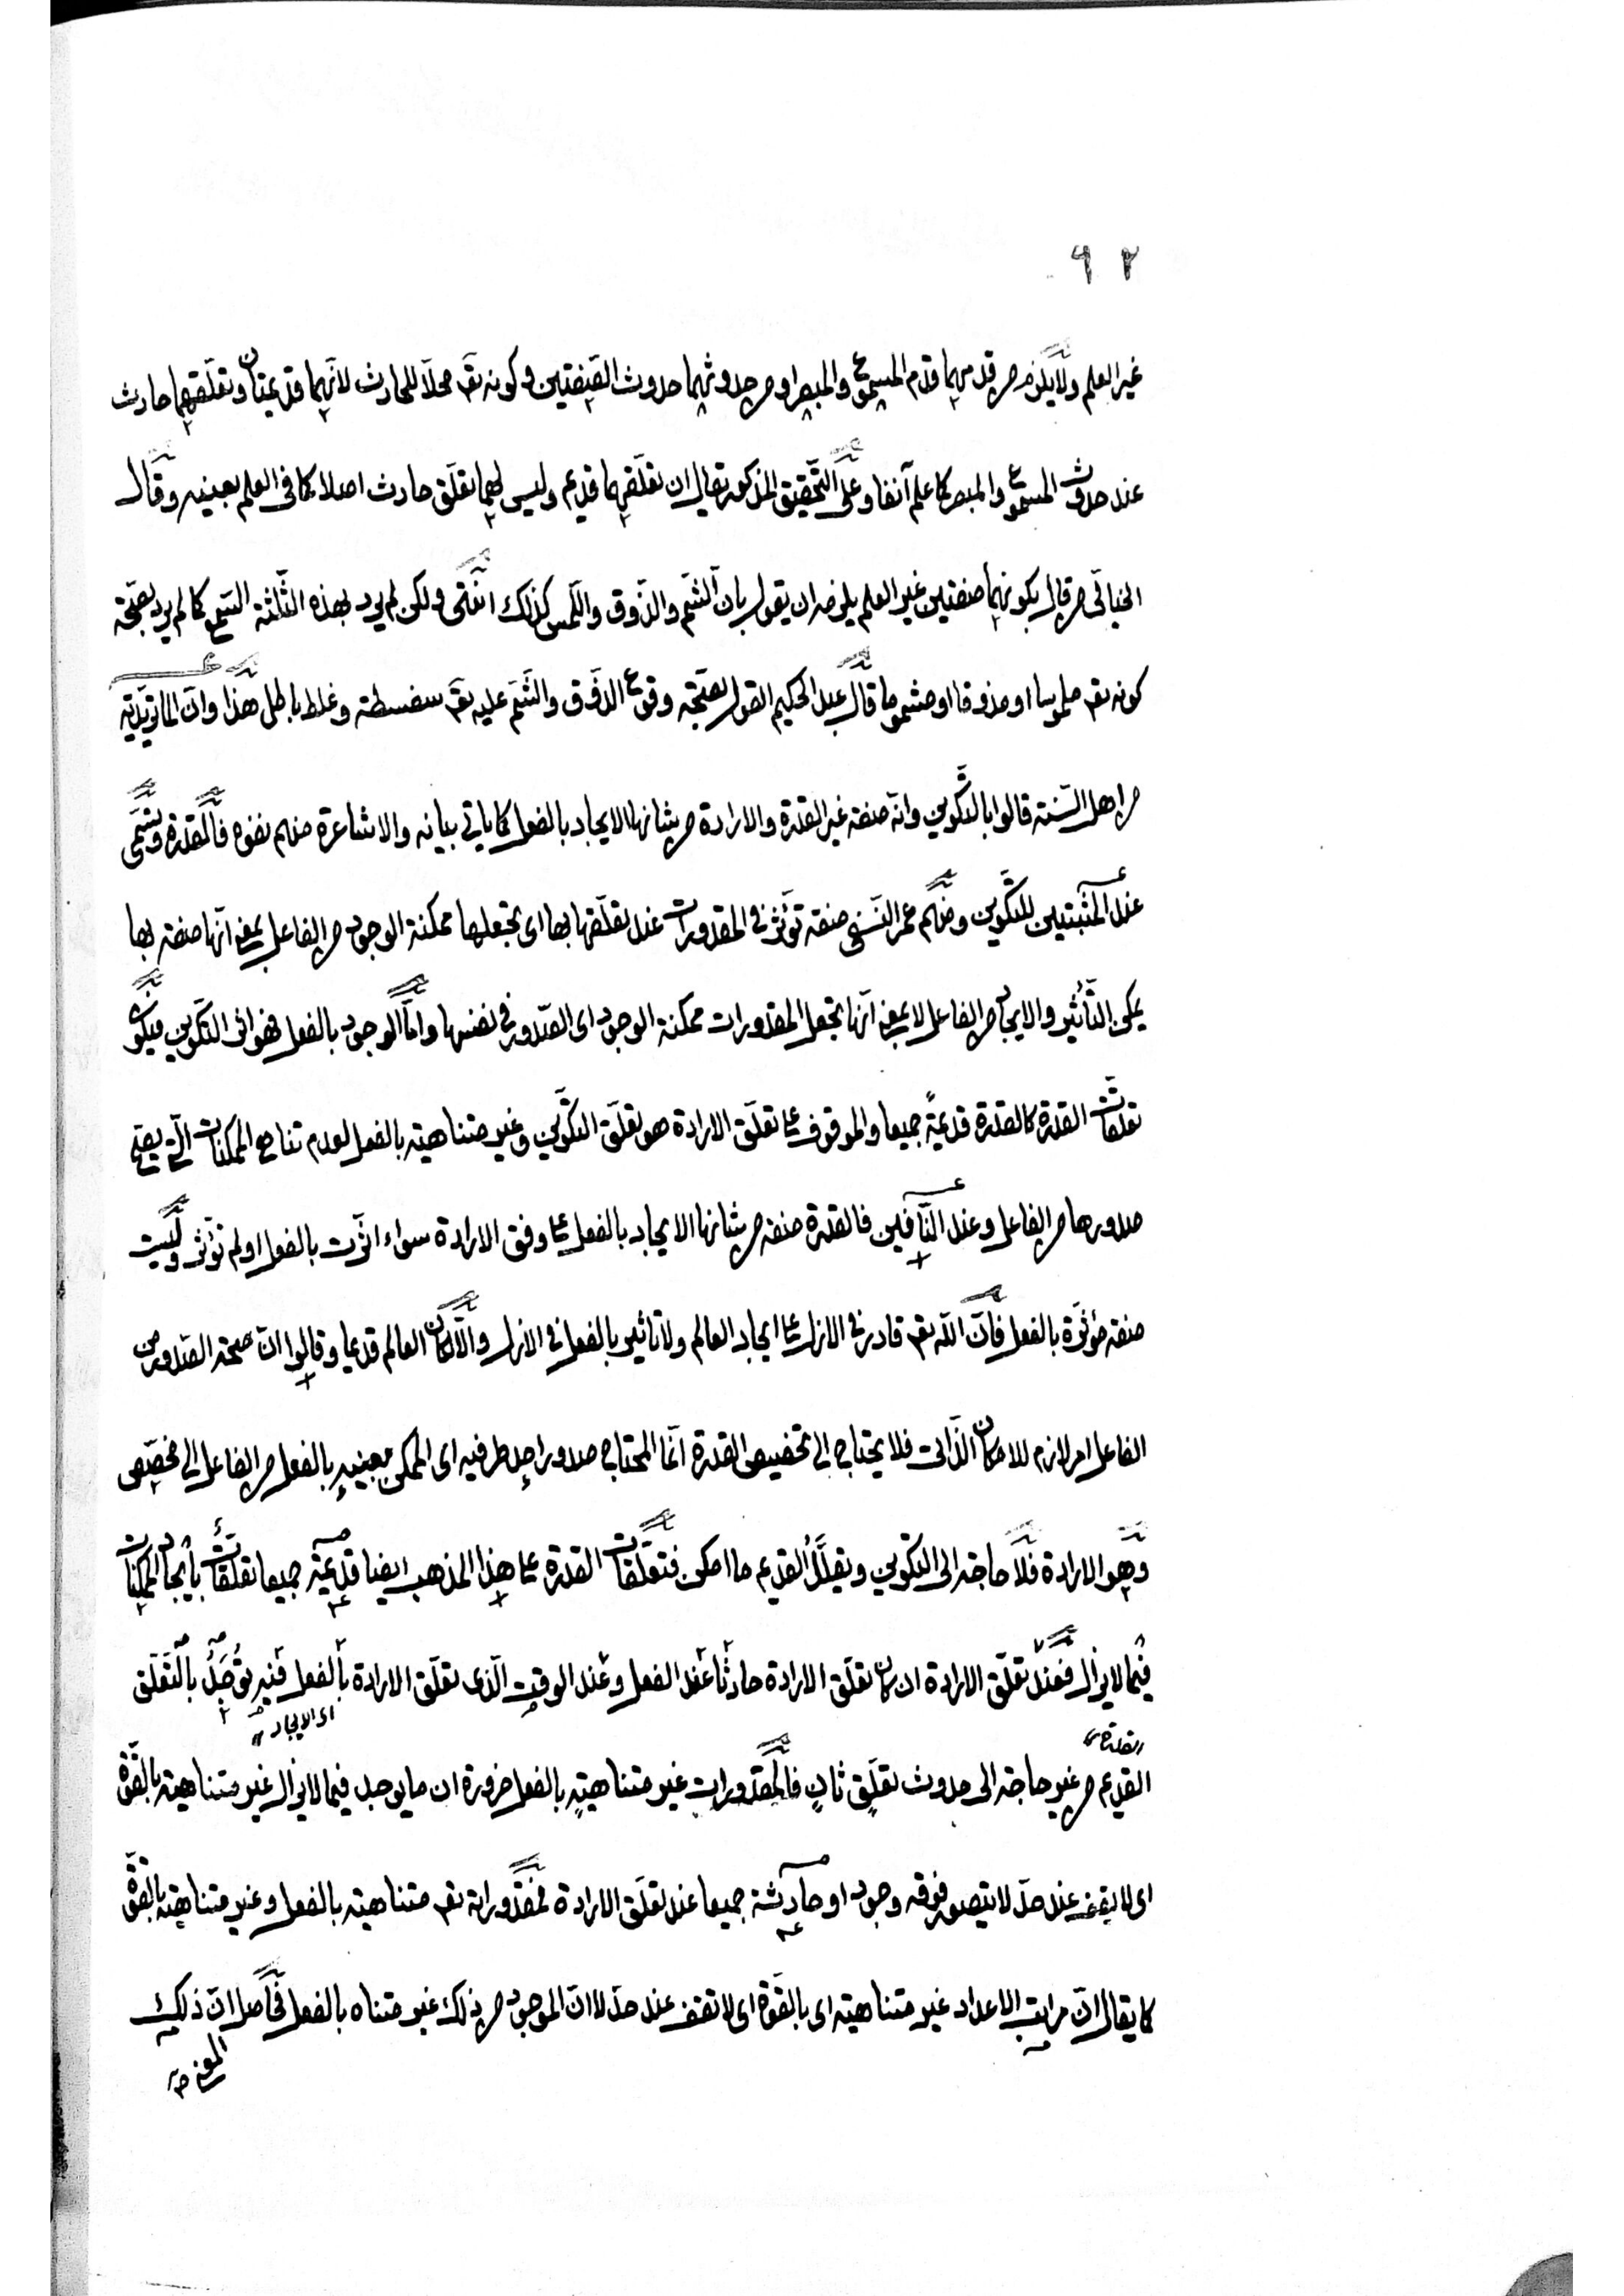 ٩٢
غير العلم ولا يلزم من قدمهما قدم المسموع والمبصر او من حدوثهما حدوث الصفتين وكونه تعـ محلا للحادث لانهما قديمتان وتعلقهما حادث
عند حدوث المسموع والمبصر كما علم آنفا وعلى التحقيق المذكور يقال ان تعلقهما قديم وليس لهما تعلق حادث اصلا كما فى العلم بعينه وقال
الخيالى من قال بكونهما صفتين غير العلم يلزمه ان يقول بان الشم والذوق واللمس كذلك انتهى ولكن لم يرد بهذه الثلثة السمع كما لم يرد بصحة
كونه تعـ ملموسا او مذوقا او مشموما قال عبد الحكيم القول بصحة وقوع الذوق والشم عليه تعـ سفسطة وغلط باطل هذا وان الماتريدية
من اهل السنة قالوا بالتكوين وانه صفة غير القدرة والارادة من شانها الايجاد بالفعل كما ياتى بيانه والاشاعرة منهم نفوه فالقدرة وتسمى
عند المثبتين للتكوين ومنهم عمر النسفى صفة تؤثر فى المقدورات عند تعلقها بها اى تجعلها ممكنة الوجود من الفاعل بمعنى انها صفة بها
يمكن التأثير والايجاد من الفاعل لا بمعنى انها تجعل المقدورات ممكنة الوجود اى الصدور فى نفسها واما الوجود بالفعل فهو اثر التكوين فيكون
تعلقات القدرة كالقدرة قديمة جميعا والموقوف على تعلق الارادة هو تعلق التكوين وغير متناهية بالفعل لعدم تناهى الممكنات التى يصح
صدورها من الفاعل وعند النافين فالقدرة صفة من شانها الايجاد بالفعل على وفق الارادة سواء اثرت بالفعل او لم تؤثر وليست
صفة مؤثرة بالفعل فان الله تعـ قادر فى الازل على ايجاد العالم ولا تاثير بالفعل فى الازل والا لكان العالم قديما وقالوا ان صحة الصدور من
الفاعل امر لازم للامكان الذاتى فلا يحتاج الى تخصيص القدرة انما المحتاج صدور احد طرفيه اى الممكن بعينه بالفعل من الفاعل الى مخصص
وهو الارادة فلا حاجة الى التكوين ويقلل القديم ما امكن فتعلقات القدرة على هذا المذهب ايضا قديمة جميعا تعلقت بايجاد الممكنات
فيما لا يزال فعند تعلق الارادة ان كان تعلق الارادة حادثا عند الفعل وعند الوقت الذى تعلق الارادة بالفعل فيه يوجد بالتعلق
اى الايجاد
القدرة
القديم من غير حاجة الى حدوث تعلق ثان فالمقدورات غير متناهية بالفعل ضرورة ان ما يوجد فيما لا يزال غير متناهية بالقوة
اى لا يقف عند حد لا يتصور فوقه وجود او حادثة جميعا عند تعلق الارادة فمقدوراته تعـ متناهية بالفعل وغير متناهية بالقوة
كما يقال ان مراتب الاعداد غير متناهية اى بالقوة اى لا تقف عند حد لا ان الموجود من ذلك غير متناه بالفعل فحاصل ان ذلك